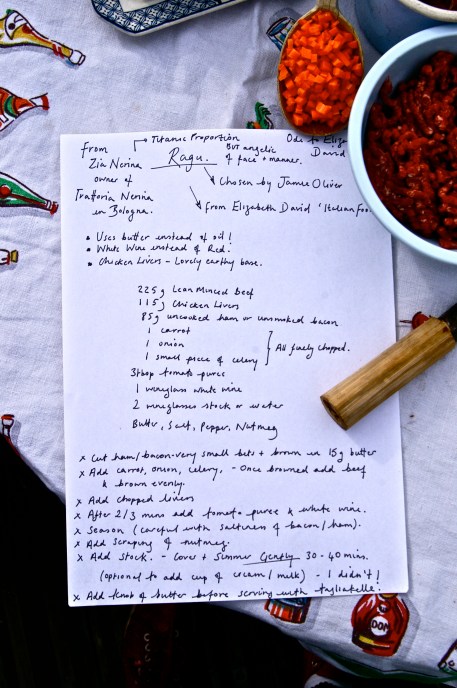 From → Titanic Proportion Ode to Eliza
Zia Nerina Ragu. BUT angelic of face + manner. David
owner of Chosen by Jamie Oliver
Trattoria Nerina from Elizabeth David 'Italian Foo
in Bologna.
• Uses butter instead of oil!
• White Wine instead of Red!
• Chicken Livers - Lovely earthy base.
225g Lean Minced Beef
115g Chicken Livers
85g uncooked ham or unsmoked bacon
1 carrot
1 onion } All finely chopped.
1 small piece of celery
3tbsp tomato puree
1 wineglass white wine
2 wineglasses stock or water
Butter, Salt, Pepper, Nutmeg
x Cut ham/bacon - very small bits + brown in 15g butter
x Add carrot, onion, celery, - Once browned add beef
& brown evenly.
x Add chopped livers
x After 2/3 mins add tomato puree & white wine.
x Season (careful with saltiness of bacon/ham).
x Add scraping of nutmeg.
x Add Stock. - Cover + Simmer Gently 30-40 mins.
(optional to add cup of cream/milk) - I didn't!
x Add knob of butter before serving with tagliatelle!